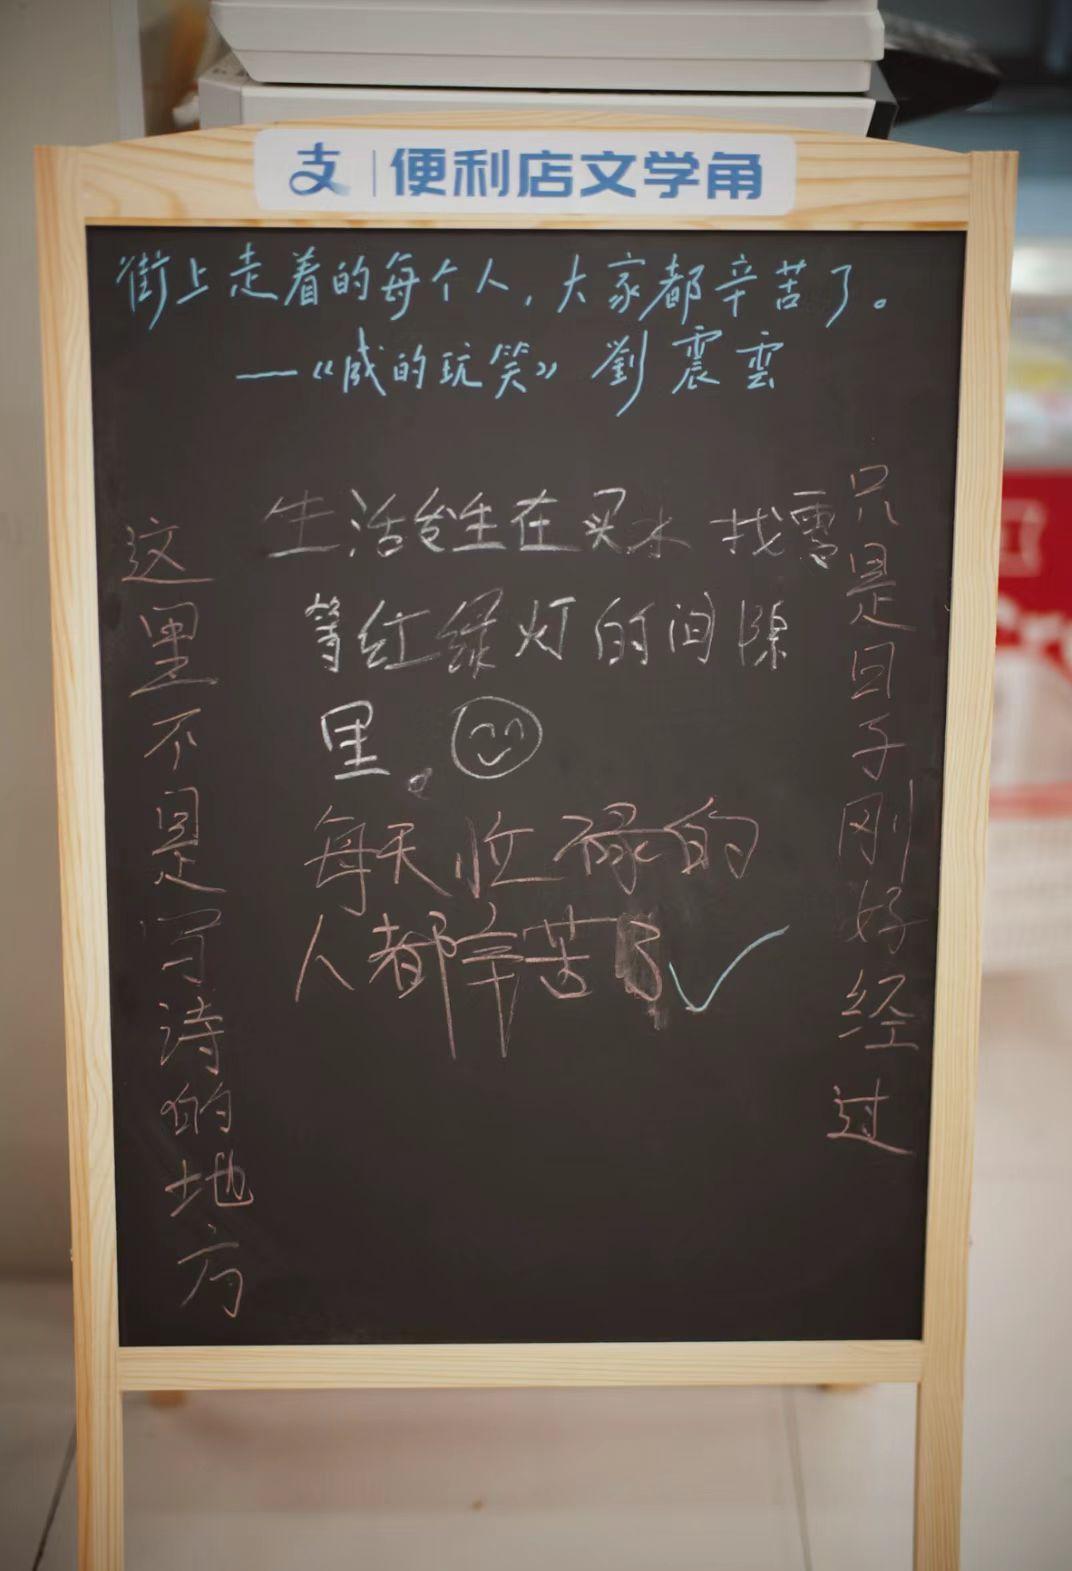 支 | 便利店文学角
街上走着的每个人,大家都辛苦了。
—《咸的玩笑》劉震雲
生活发生在买水 找零
等红绿灯的间隙
里。
每天忙碌的
人都辛苦了
这里不是写诗的地方
只是日子刚好经过